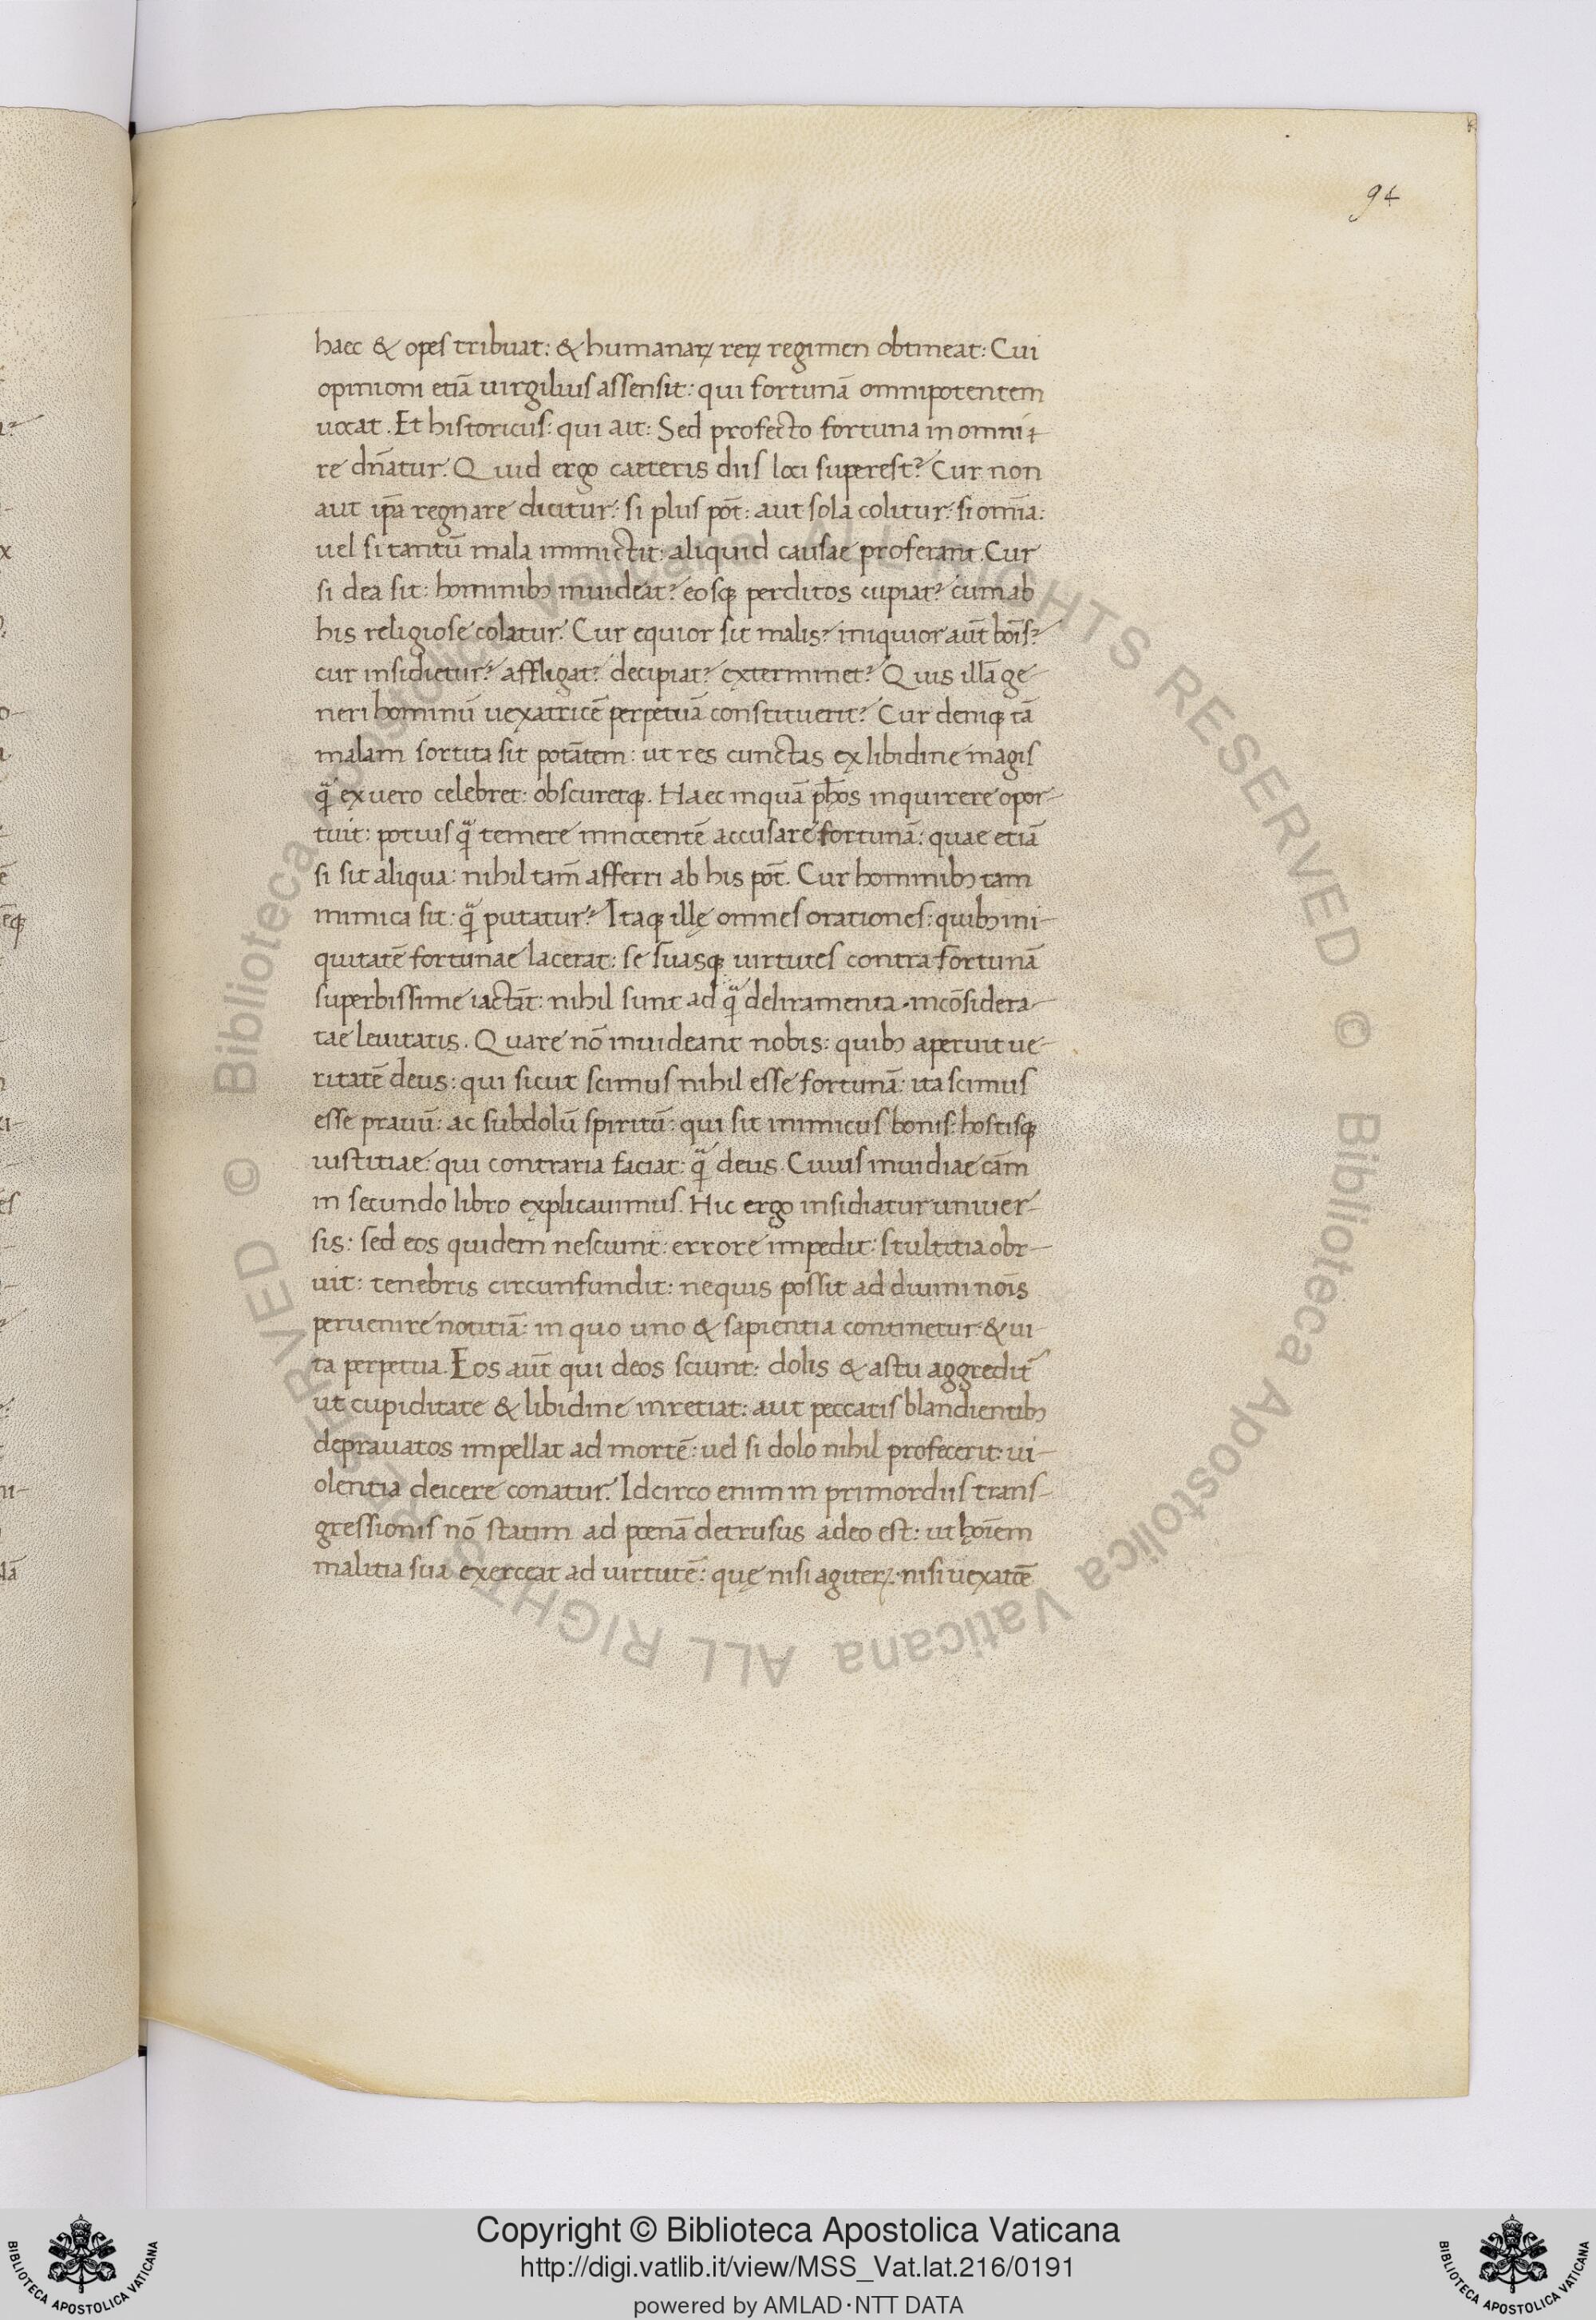 94
haec & opes tribuat: & humanaꝝ reꝝ regimen obtineat: Cui
opinioni etiā uirgilius assensit: qui fortunā omnipotentem
uocat. Et historicus: qui ait: Sed profecto fortuna in omni
re dn̄atur. Quid ergo caeteris diis loci superest? Cur non
aut ip̄a regnare dicitur: si plus pōt: aut sola colitur: si omīa:
uel si tantū mala immictit: aliquid causae proferant. Cur
si dea sit: hominibꝫ inuideat? eosqꝫ perditos cupiat? cum ab
his religiose colatur. Cur equior sit malis? iniquior aūt boīs?
cur insidietur? affligat? decipiat? exterminet? Quis illā ge-
neri hominū uexatricē perpetuā constituerit? Cur deniqꝫ tā
malam sortita sit potātem: ut res cunctas ex libidine magis
qͣ̃ ex uero celebret: obscuretqꝫ. Haec inquā ph̄os inquirere opor-
tuit: potuis qͣ̃ temere innocentē accusare fortunā: quae etiā
si sit aliqua: nihil tam̄ afferri ab his pōt. Cur hominibꝫ tam
inimica sit: qͣ̃ putatur? Itaqꝫ illę omnes orationes: quibꝫ ini-
quitatē fortunae lacerat: se suasqꝫ uirtutes contra fortunā
superbissime iactāt: nihil sunt ad qͣ̃ deliramenta. incōsidera-
tae leuitatis. Quare nō inuideant nobis: quibꝫ aperuit ue-
ritatē deus: qui sicut scimus nihil esse fortunā: ita scimus
esse prauū: ac subdolū spiritū: qui sit inimicus bonis: hostisqꝫ
iustitiae: qui contraria faciat: qͣ̃ deus. Cuius inuidiae cām
in secundo libro explicauimus. Hic ergo insidiatur uniuer-
sis: sed eos quidem nesciunt: errore impedit: stultitia obr-
uit: tenebris circunfundit: nequis possit ad diuini nōis
peruenire notitiā: in quo uno & sapientia continetur & ui-
ta perpetua. Eos aūt qui deos sciunt: dolis & astu aggredit̄
ut cupiditate & libidine inretiat: aut peccatis blandientibꝫ
deprauatos impellat ad mortē: uel si dolo nihil profecerit: ui-
olentia deicere conatur. Idcirco enim in primordiis trans-
gressionis nō statim ad poenā detrusus adeo est: ut hoīem
malitia sua exerceat ad uirtutē: quę nisi agiteꝝ. nisi uexatōē
© Biblioteca Apostolica Vaticana ALL RIGHTS RESERVED © Biblioteca Apostolica Vaticana ALL RIGHTS RESERVED
BIBLIOTECA APOSTOLICA VATICANA
Copyright © Biblioteca Apostolica Vaticana
http://digi.vatlib.it/view/MSS_Vat.lat.216/0191
powered by AMLAD·NTT DATA
BIBLIOTECA APOSTOLICA VATICANA